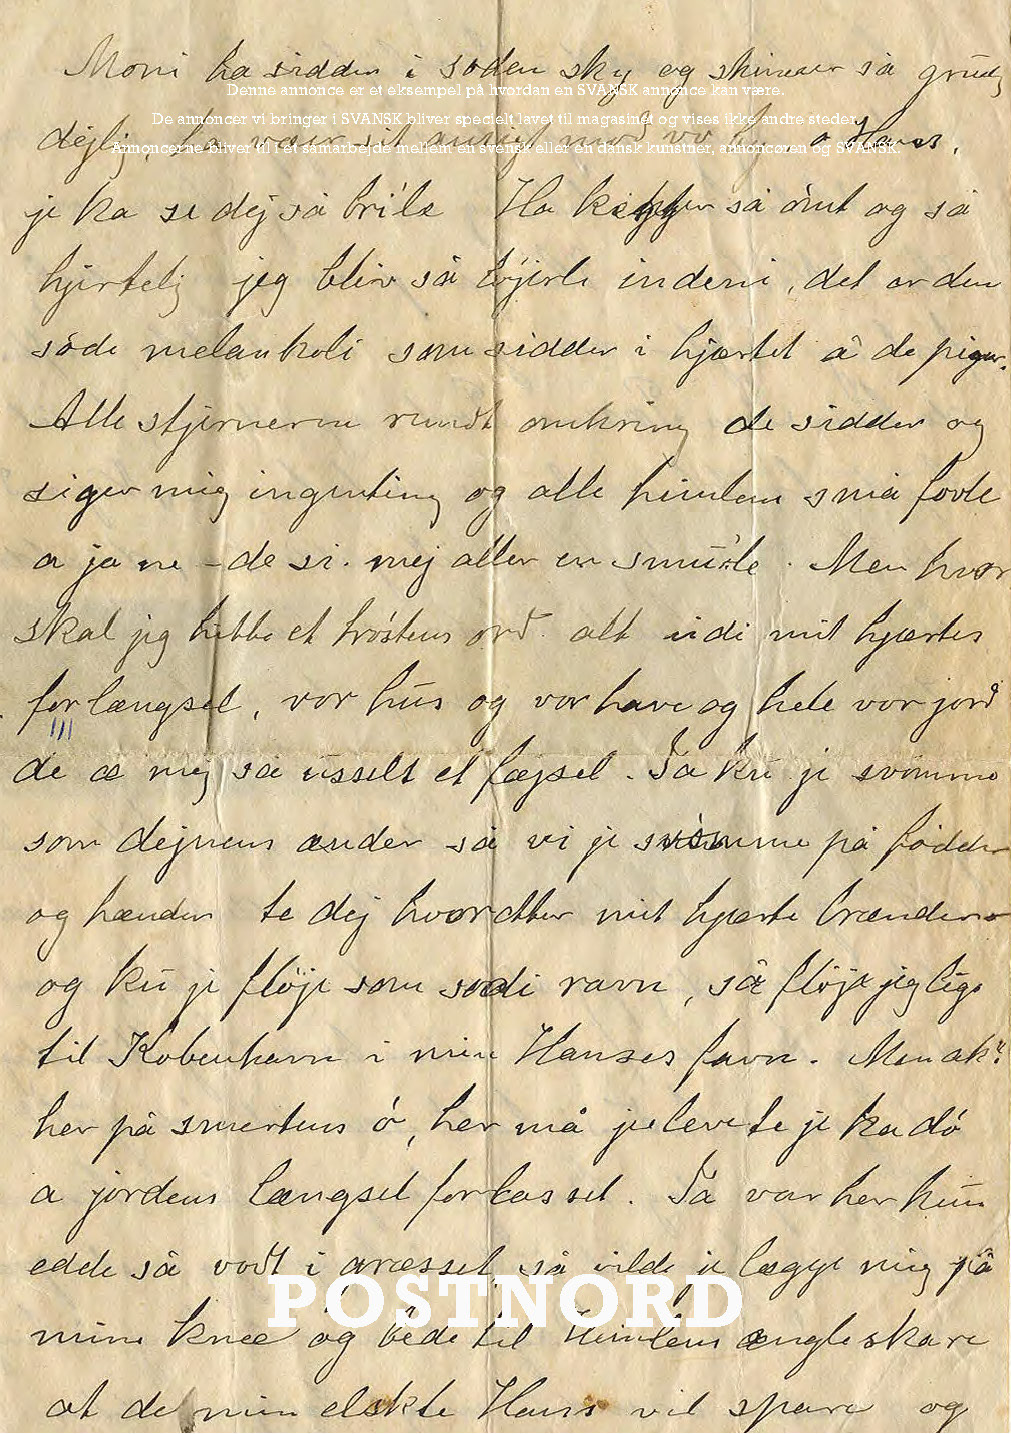 Moni ha sidder i soden sky og skinner så
Denne annonce er et eksempel på hvordan en SVANSK annonce kan være.
De annoncer vi bringer i SVANSK bliver specielt lavet til magasinet og vises ikke andre steder.
dejlig, Hans,
Annoncerne bliver til i et samarbejde mellem en svensk eller en dansk kunstner, annoncøren og SVANSK.
je ka se dej så Ha så ömt og så
hjertelig jeg bliv så inderni, det er den
söde melankoli som sidder i hjærtet å de piger.
Alle stjernerne rundt omkring de sidder og
siger mig ingenting og alle himlens små fovle
a ja ne - de si. mej aller en smule. Men hvor
skal jeg hitte et tröstens ord alt udi mit hjærtes
forlængsel, vor hus og vor have og hele vor jord
de æ mej så usselt et fæjsel. Ja ku je svömme
som dejnens ænder så vi je svömme på födder
og hænder te dej hvoratter mit hjærte brænder
og ku je flöje som ravn, så flöje jeg lige
til Köbenhavn i min Hanses favn. Men ak!
her på smertens ö, her må je leve te je ka dö
a jordens længsel forlasset. Ja var her kun
edde så vodt i græsset, så vilde je lægge mig på
POSTNORD
mine knæ og bede til Himlens ængleskare
at de min elskte Hans vil spare og